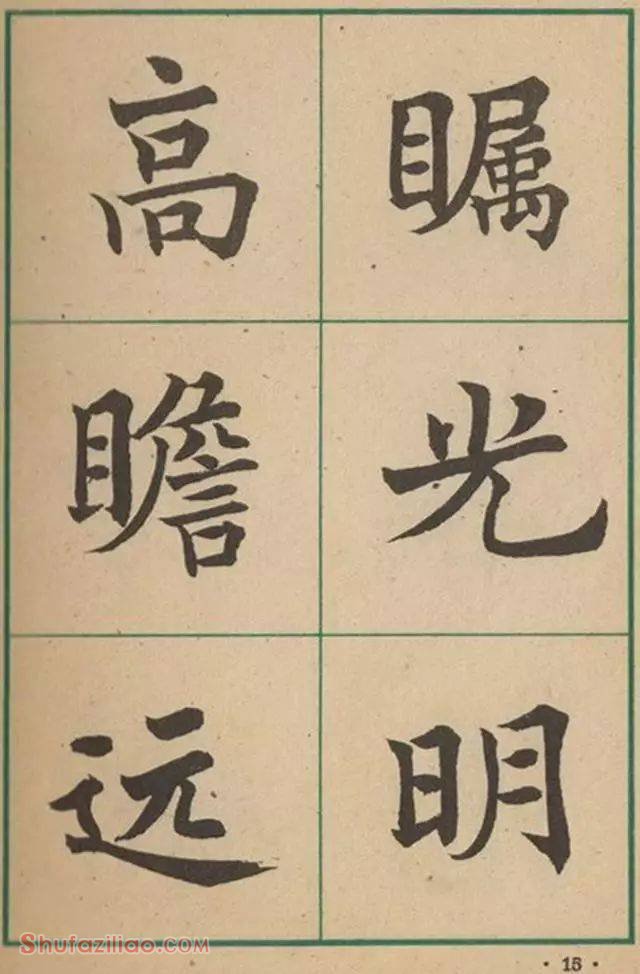 高瞻远
瞩光明
Shufaziliao.com
· 15 ·